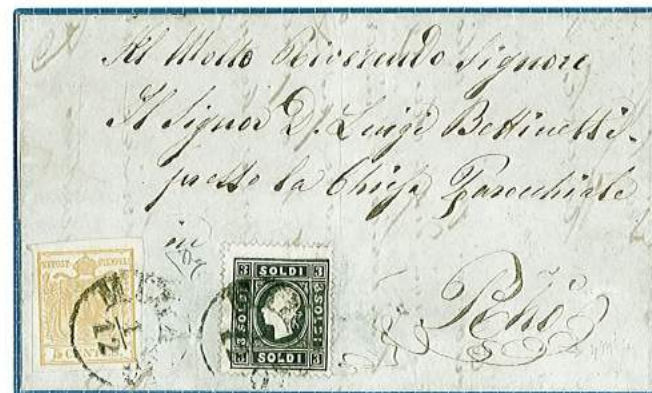 Al Molto Riverendo Signore
Il Signor D. Luigi Bettinetti
presso la Chiesa Parocchiale
in
Rho
KKPOST-STEMPEL
5 CENTES
SOLDI
3 3
3 SOLDI
3 SOLDI
3 SOLDI 3
1/12